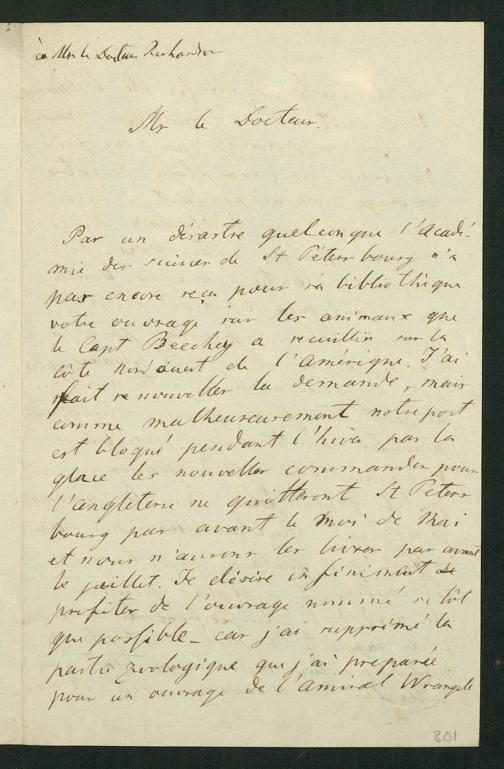 à Mr le Docteur Richardson
Mr le Docteur.
Par un désastre quelconque l'Acadé-
mie des sciences de St Petersbourg n'a
pas encore reçu pour sa bibliothèque
votre ouvrage sur les animaux que
le Capt Beechey a recueillis sur la
côte nord ouest de l'Amérique. J'ai
fait renouveller la demande, mais
comme malheureusement notre port
est bloqué pendant l'hiver par la
glace les nouvelles commandes pour
l'angleterre ne quitteront St Peters
bourg pas avant le moi de Mai
et nous n'aurons les livres pas avant
le juillet. Je désire infiniment de
profiter de l'ouvrage nommé si tôt
que possible - car j'ai supprimé la
partie zoologique que j'ai preparée
pour un ouvrage de l'amiral Wrangell
301